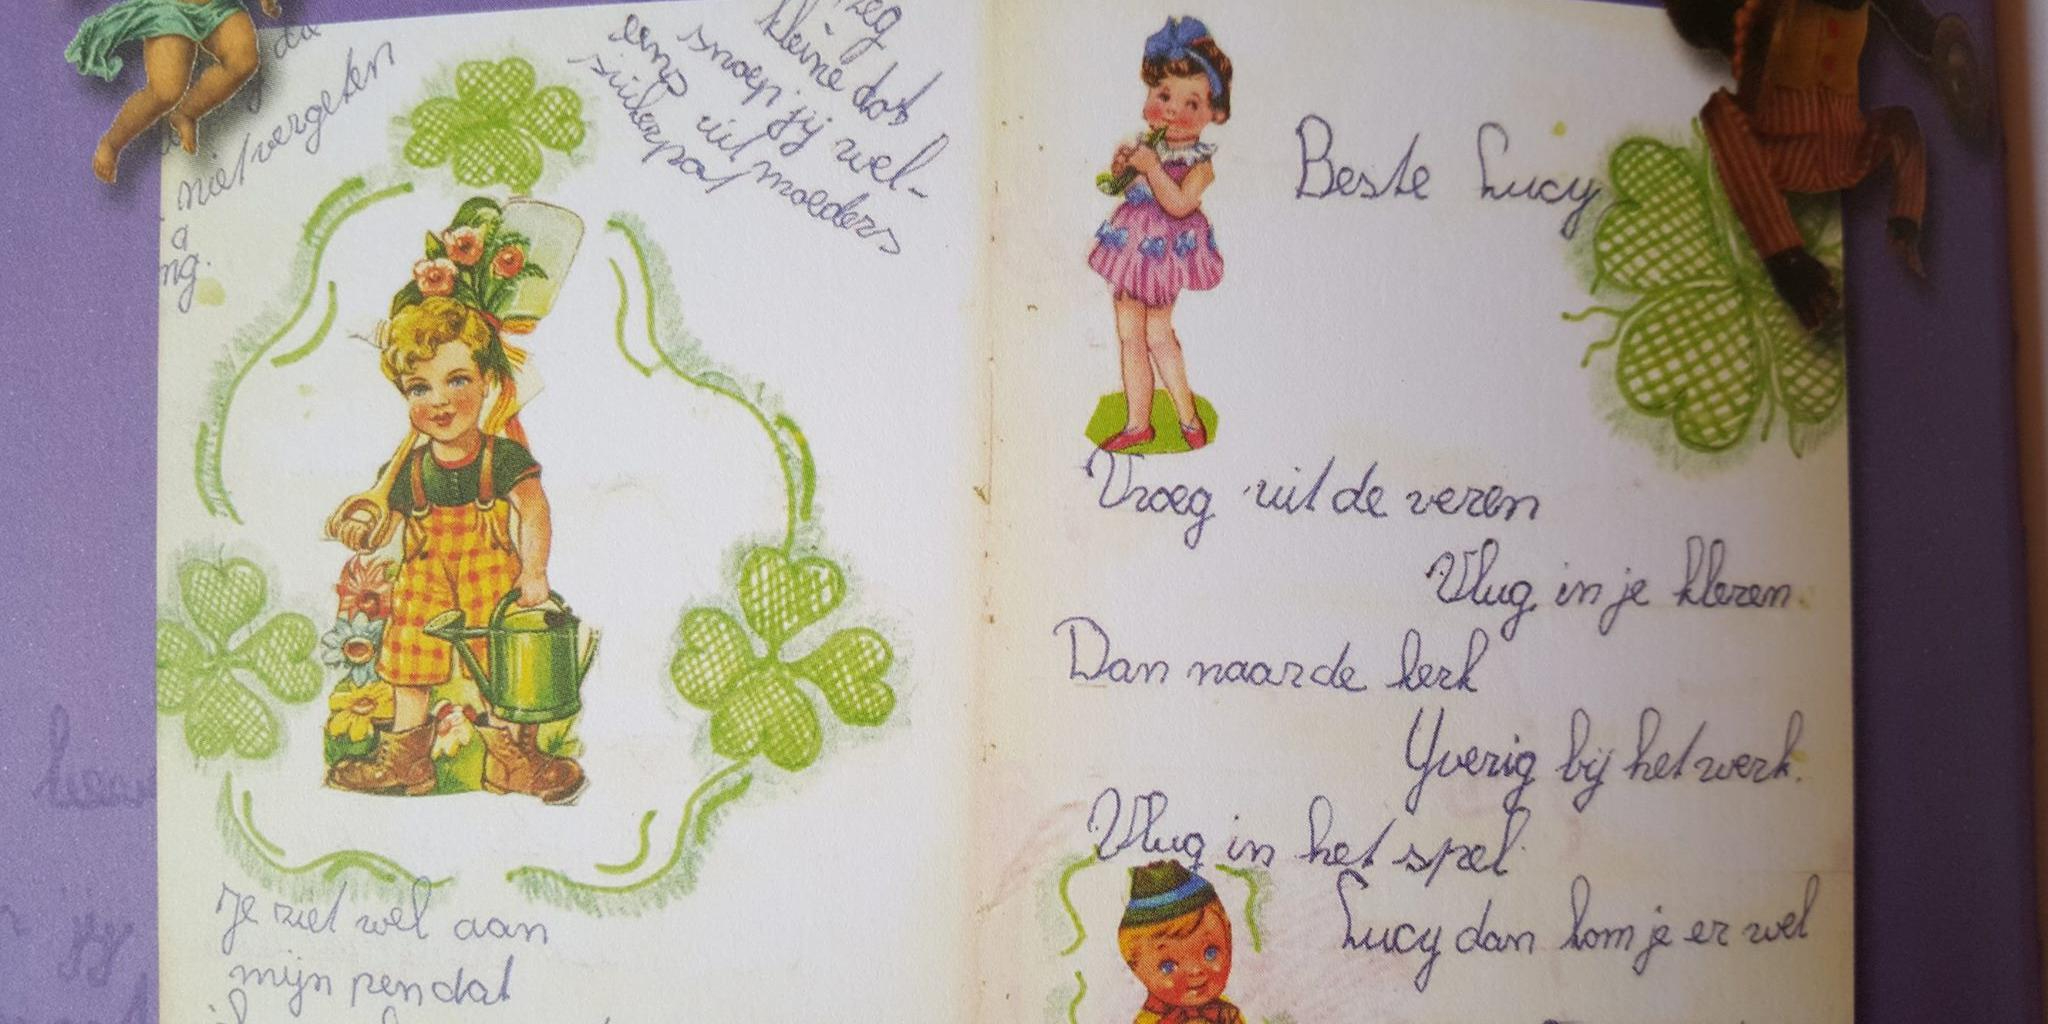 niet vergeten
a
ng.
zeg
kleine dot
snoep jij wel-
eens uit moeders
suikerpot
Je ziet wel aan
mijn pen dat
Beste Lucy
Vroeg uit de veren
Vlug in je kleren.
Dan naar de kerk
Yverig bij het werk.
Vlug in het spel
Lucy dan kom je er wel
jij